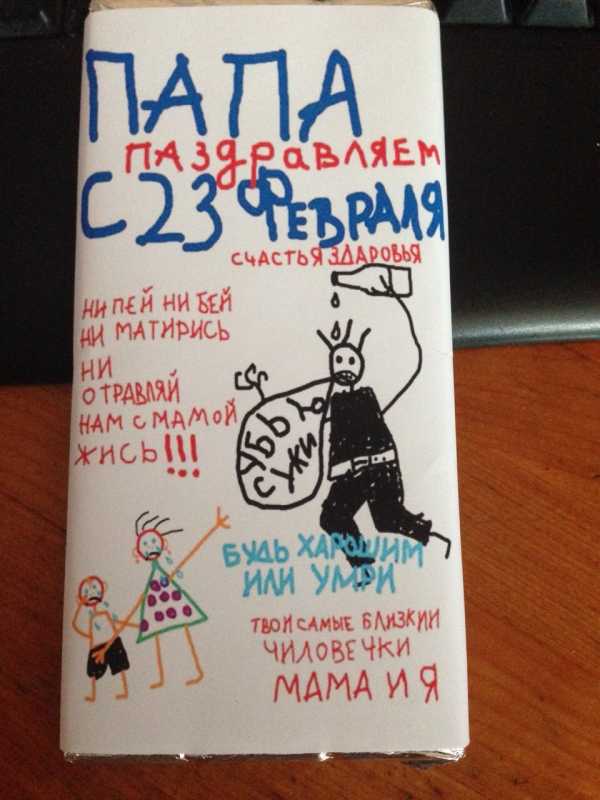 ПАПА
ПАЗДРАВЛЯЕМ
С 23 ФЕВРАЛЯ
СЧАСТЬЯ ЗДАРОВЬЯ
НИ ПЕЙ НИ БЕЙ
НИ МАТИРИСЬ
НИ
ОТРАВЛЯЙ
НАМ С МАМОЙ
ЖИСЬ!!!
УБЬЮ
СУЖИ
БУДЬ ХАРОШИМ
ИЛИ УМРИ
ТВОИ САМЫЕ БЛИЗКИИ
ЧИЛОВЕЧКИ
МАМА И Я